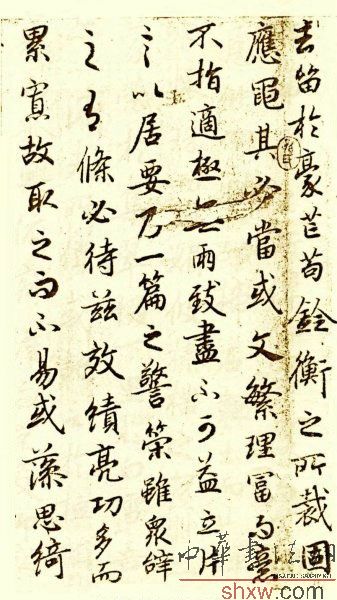 去留於豪芒苟銓衡之所裁固
應繩其必當或文繁理富而意
不指適極無兩致盡不可益立片
言以居要乃一篇之警策雖眾辭
之有條必待茲效績亮功多而
累寡故取之而不易或藻思綺
中華書法網
shxw.com